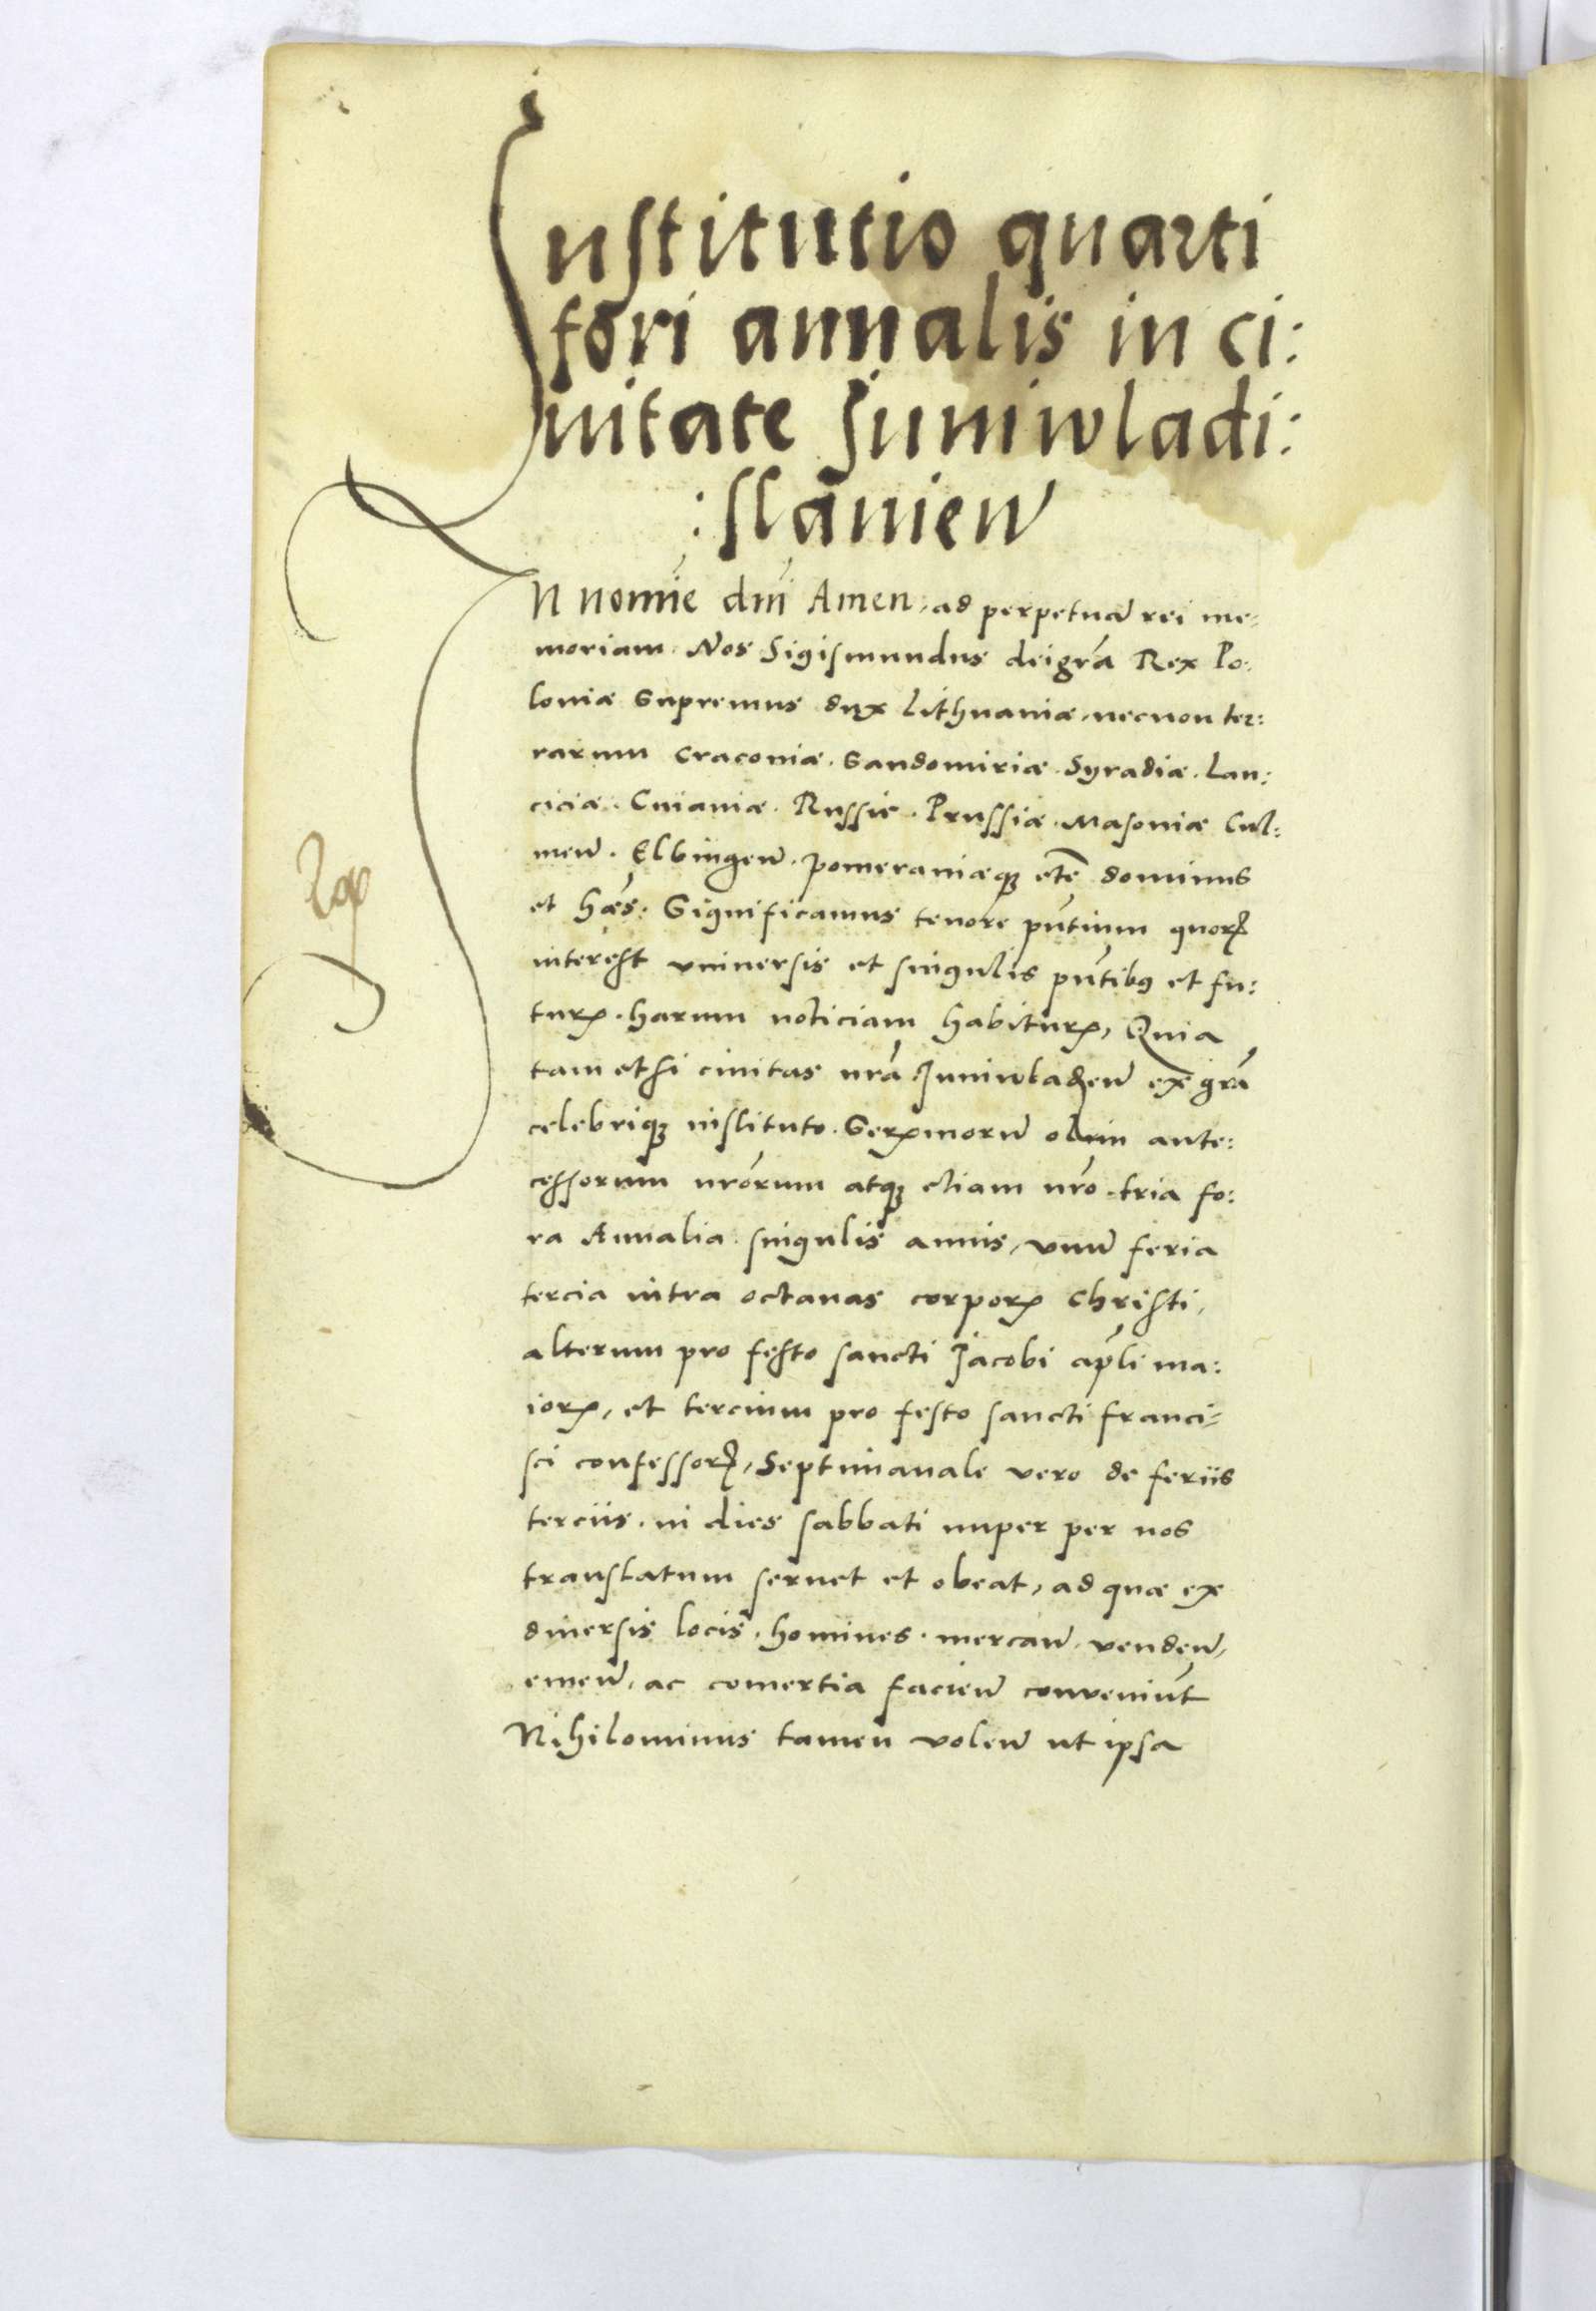 Institutio quarti
fori annalis in ci:
uitate Juniwladi:
:slauien̄
IN nomīe dnī Amen, ad perpetuā rei me-
moriam. Nos Sigismundus dei gr̄a Rex Po-
loniæ Supremus dux Lithuaniæ, necnon ter:
rarum Cracouiæ. Sandomiriæ. Syradiæ. Lan:
ciciæ. Cuiauiæ. Russiæ. Prussiæ. Masouiæ Cul:
men̄. Elbingen̄. Pomeraniæq₃ etc̄ dominus
et hæs̄. Significamus tenore pn̄tium quoꝝ
interest vniuersis et singulis pn̄tibꝯ et fu:
turꝭ. harum noticiam habiturꝭ, Quia
tametsi ciuitas nr̄a Juniwladꝭen̄ ex gr̄a
celebriq₃ instituto. Serꝭmorū olim ante:
cessorum nr̄orum atq₃ etiam nr̄o. tria fo:
ra Annalia singulis annis, vnū feria
tercia intra octauas corporꝭ Christi,
alterum pro festo sancti Jacobi apl̄i ma:
iorꝭ, et tercium pro festo sancti franci-
sci confessorꝭ, Septimanale vero de feriis
terciis. in dies sabbati nuper per nos
translatum seruet et obeat, ad quæ ex
diuersis locis. homines. mercan̄. venden̄,
emen̄, ac comertia facien̄ conueniūt
Nihilominus tamen volen̄ ut ipsa